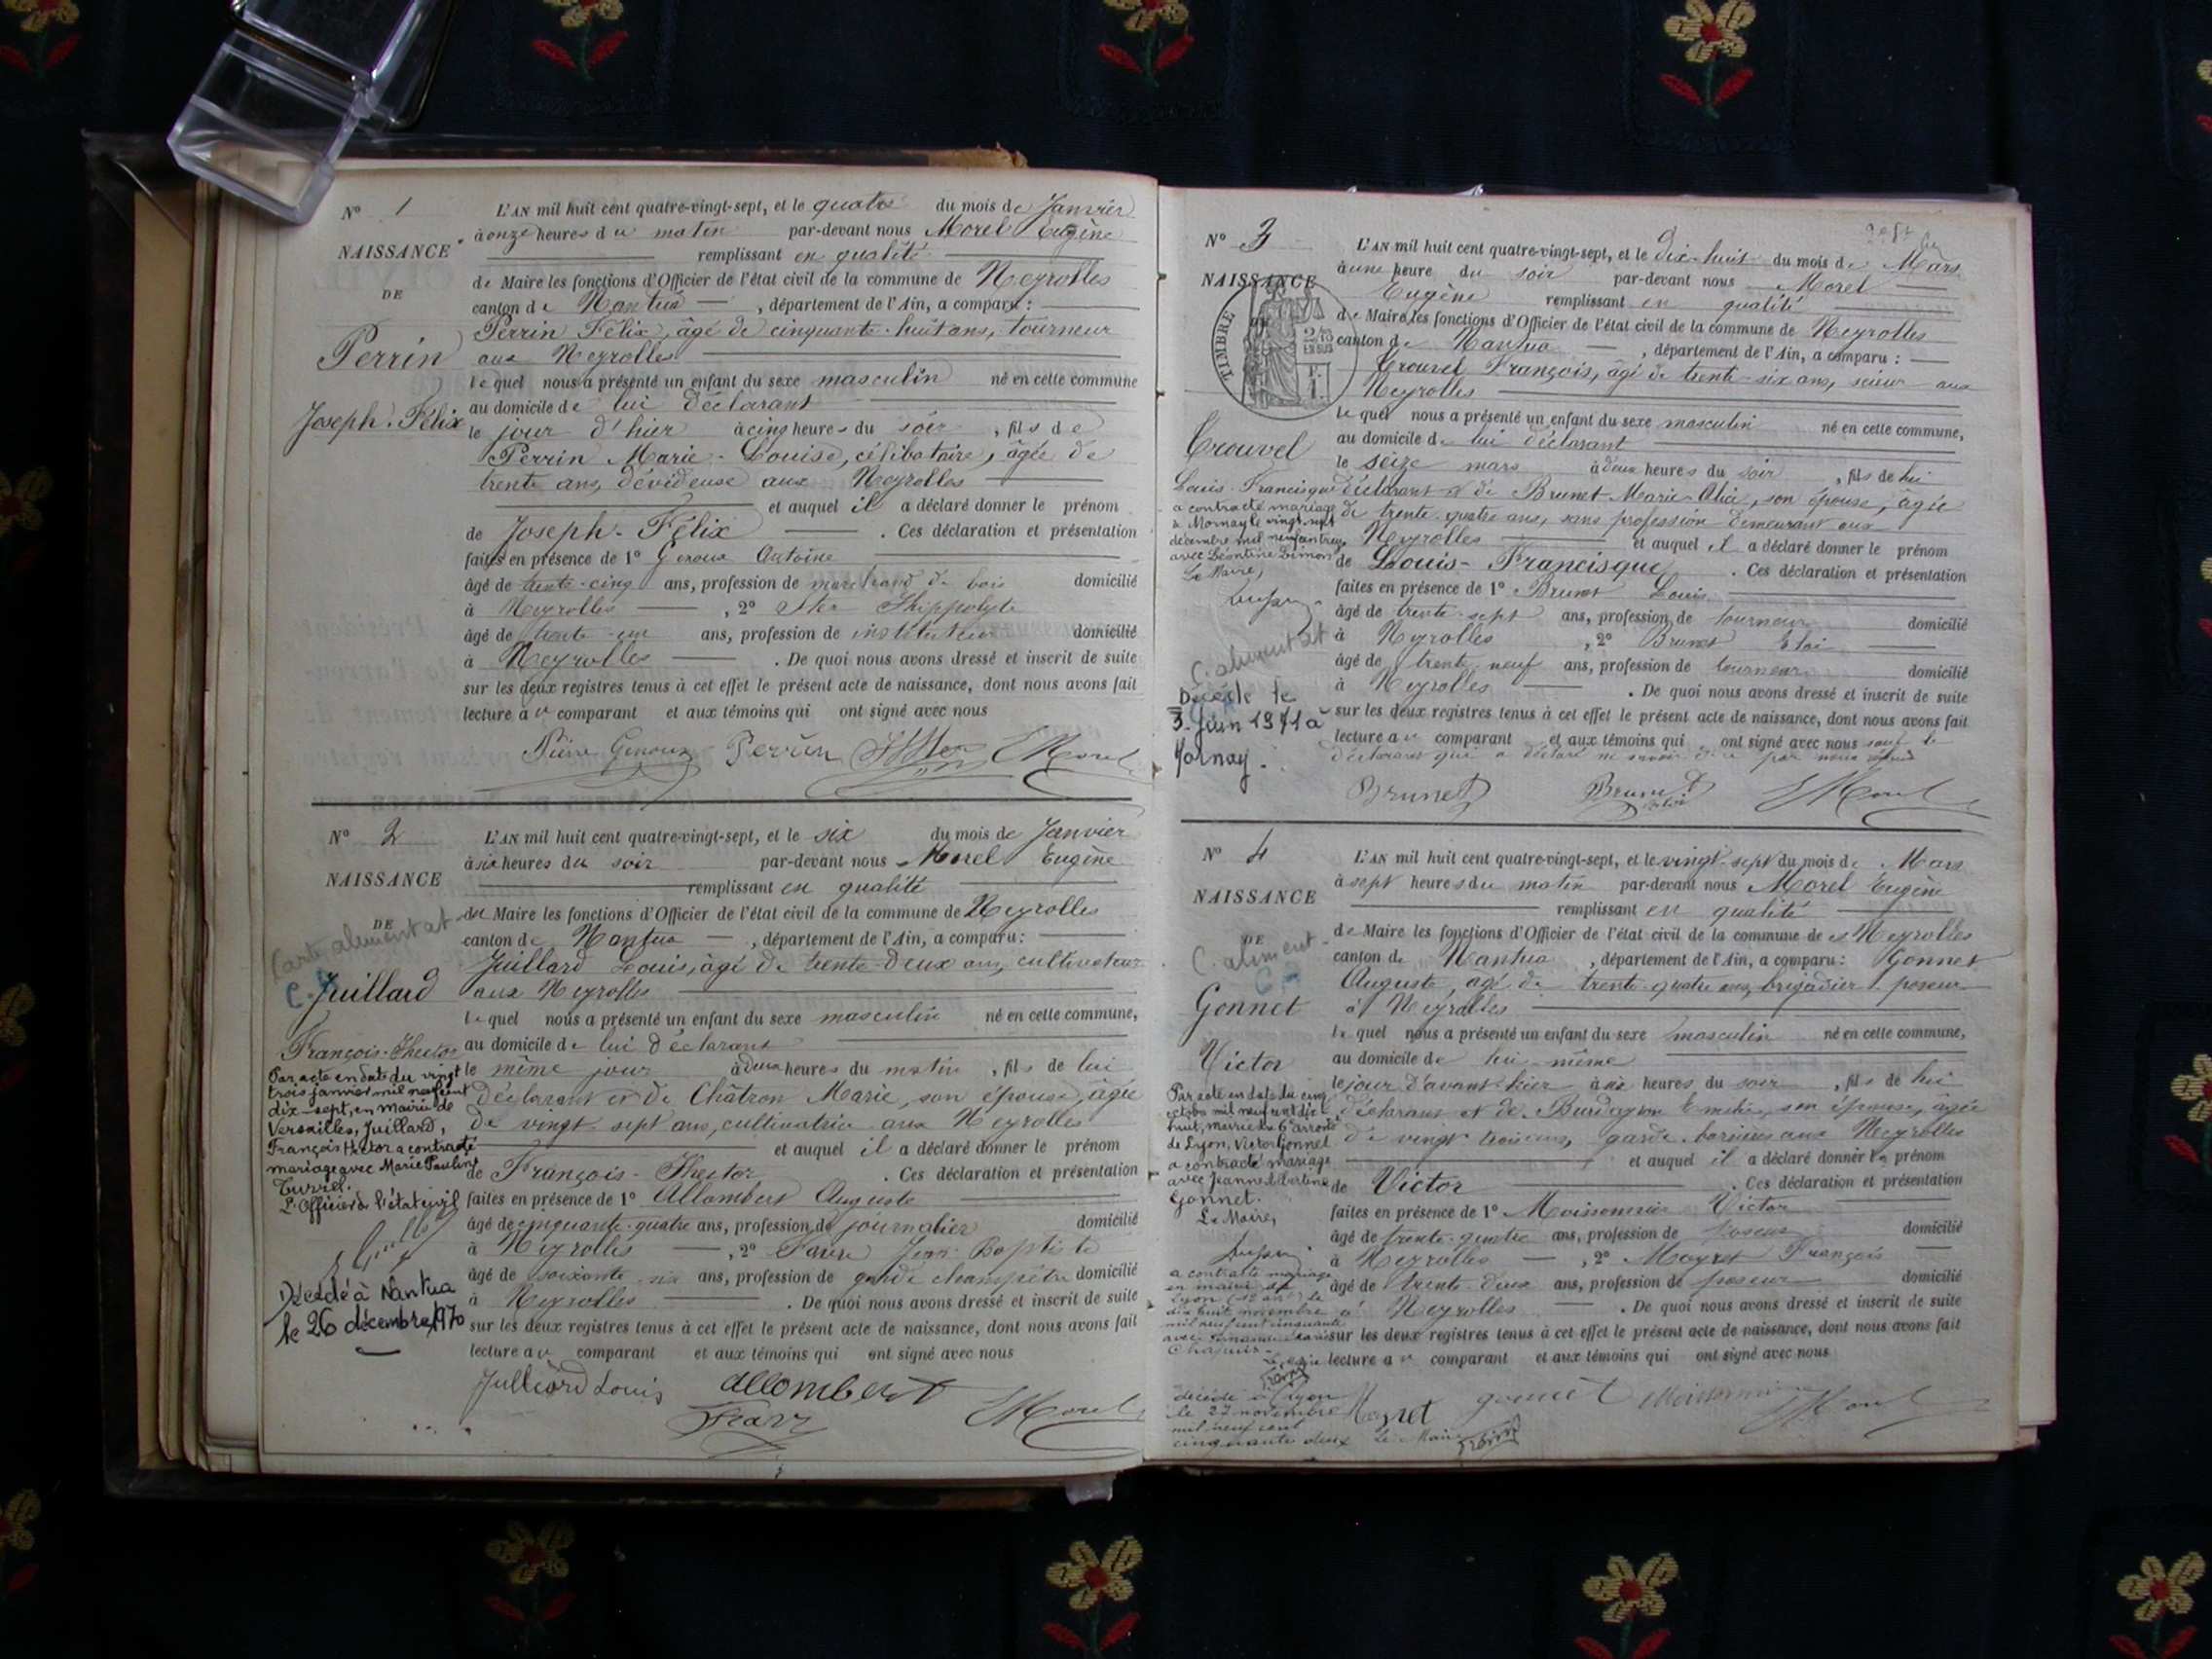 N° 1
NAISSANCE
DE
Perrin
Joseph-Félix
L'AN mil huit cent quatre-vingt-sept, et le quatre du mois de Janvier
à onze heures du matin par-devant nous Morel Eugène
remplissant en qualité
de Maire les fonctions d'Officier de l'état civil de la commune de Neyrolles
canton de Nantua, département de l'Ain, a comparu :
Perrin Félix, âgé de cinquante-huit ans, tourneur
aux Neyrolles
lequel nous a présenté un enfant du sexe masculin né en cette commune
au domicile de lui déclarant
le jour d'hier à cinq heures du soir, fils de
Perrin Marie-Louise, célibataire, âgée de
trente ans, dévideuse aux Neyrolles
et auquel il a déclaré donner le prénom
de Joseph-Félix. Ces déclaration et présentation
faites en présence de 1° Genoux Antoine
âgé de trente-cinq ans, profession de marchand de bois domicilié
à Neyrolles, 2°
âgé de trente-un ans, profession de instituteur domicilié
à Neyrolles. De quoi nous avons dressé et inscrit de suite
sur les deux registres tenus à cet effet le présent acte de naissance, dont nous avons fait
lecture au comparant et aux témoins qui ont signé avec nous
Genoux Perrin EMorel
N° 2
NAISSANCE
DE
Carte alimentat
Juillard
François-Hector
Par acte en date du vingt
trois janvier mil neuf cent
dix-sept, en mairie de
Versailles, Juillard,
François Hector a contracté
mariage avec Marie Pauline
Turrel.
L'Officier de l'état civil
Décédé à Nantua
le 26 décembre 1970
L'AN mil huit cent quatre-vingt-sept, et le six du mois de Janvier
à six heures du soir par-devant nous Morel Eugène
remplissant en qualité
de Maire les fonctions d'Officier de l'état civil de la commune de Neyrolles
canton de Nantua, département de l'Ain, a comparu :
Juillard Louis, âgé de trente-deux ans, cultivateur
aux Neyrolles
lequel nous a présenté un enfant du sexe masculin né en cette commune,
au domicile de lui déclarant
le même jour à deux heures du matin, fils de lui
déclarant et de Châtron Marie, son épouse, âgée
de vingt-sept ans, cultivatrice aux Neyrolles
et auquel il a déclaré donner le prénom
de François-Hector. Ces déclaration et présentation
faites en présence de 1° Allombert Auguste
âgé de cinquante-quatre ans, profession de journalier domicilié
à Neyrolles, 2° Jean-Baptiste
âgé de soixante-six ans, profession de garde champêtre domicilié
à Neyrolles. De quoi nous avons dressé et inscrit de suite
sur les deux registres tenus à cet effet le présent acte de naissance, dont nous avons fait
lecture au comparant et aux témoins qui ont signé avec nous
Louis allombert
EMorel
N° 3
NAISSANCE
TIMBRE
Louis-Francisque
a contracté mariage
à Mornay le vingt-sept
décembre mil neuf cent treize
avec Léontine
Le Maire,
C. alimentat
Décédé le
3 Juin 1971 à
Mornay.
L'AN mil huit cent quatre-vingt-sept, et le dix-huit du mois de Mars
à une heure du soir par-devant nous Morel
Eugène remplissant en qualité
de Maire les fonctions d'Officier de l'état civil de la commune de Neyrolles
canton de Nantua, département de l'Ain, a comparu :
François, âgé de trente-six ans, scieur aux
Neyrolles
lequel nous a présenté un enfant du sexe masculin né en cette commune,
au domicile de lui déclarant
le seize mars à deux heures du soir, fils de lui
déclarant et de Brunet Marie-, son épouse, âgée
de trente-quatre ans, sans profession demeurant aux
Neyrolles et auquel il a déclaré donner le prénom
de Louis-Francisque. Ces déclaration et présentation
faites en présence de 1° Brunet Louis
âgé de trente-sept ans, profession de tourneur domicilié
à Neyrolles, 2° Brunet Eloi
âgé de trente-neuf ans, profession de tourneur domicilié
à Neyrolles. De quoi nous avons dressé et inscrit de suite
sur les deux registres tenus à cet effet le présent acte de naissance, dont nous avons fait
lecture au comparant et aux témoins qui ont signé avec nous sauf le
déclarant qui a déclaré ne savoir
Brunet Brunet EMorel
N° 4
NAISSANCE
DE
C. aliment
Gonnet
Victor
Par acte en date du cinq
octobre mil neuf cent dix
huit, mairie du 6e arrondt
de Lyon, Victor Gonnet
a contracté mariage
avec Jeanne
Gonnet.
Le Maire,
a contracté mariage
en mairie de
Lyon le
dix huit novembre
mil neuf cent cinquante
avec
Chapuis
décédé à Lyon
le 27 novembre
mil neuf cent
cinquante deux Le Maire
L'AN mil huit cent quatre-vingt-sept, et le vingt-sept du mois de Mars
à sept heures du matin par-devant nous Morel Eugène
remplissant en qualité
de Maire les fonctions d'Officier de l'état civil de la commune de Neyrolles
canton de Nantua, département de l'Ain, a comparu : Gonnet
Auguste, âgé de trente-quatre ans, brigadier-poseur
à Neyrolles
lequel nous a présenté un enfant du sexe masculin né en cette commune,
au domicile de lui-même
le jour d'avant-hier à heures du soir, fils de lui
déclarant et de son épouse, âgée
de vingt-trois ans, garde-barrières aux Neyrolles
et auquel il a déclaré donner le prénom
de Victor. Ces déclaration et présentation
faites en présence de 1° Moissonnier Victor
âgé de trente-quatre ans, profession de poseur domicilié
à Neyrolles, 2° Meyret François
âgé de trente-deux ans, profession de poseur domicilié
à Neyrolles. De quoi nous avons dressé et inscrit de suite
sur les deux registres tenus à cet effet le présent acte de naissance, dont nous avons fait
lecture au comparant et aux témoins qui ont signé avec nous
Meyret EMorel